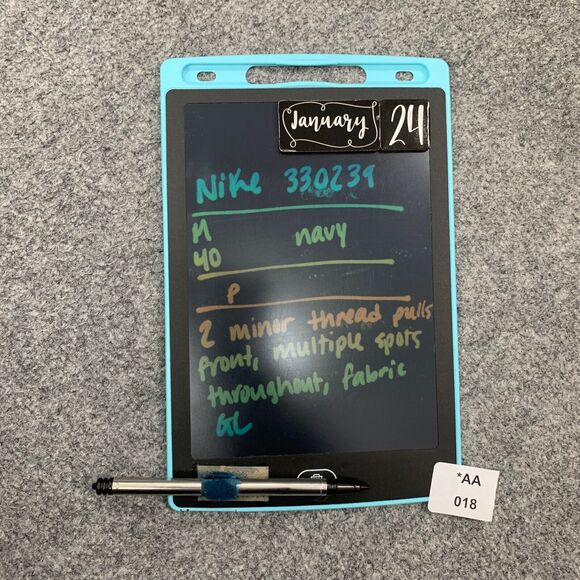 January 24
Nike 330239
M navy
40
P
2 minor thread pulls
front, multiple spots
throughout, fabric
GL
*AA
018